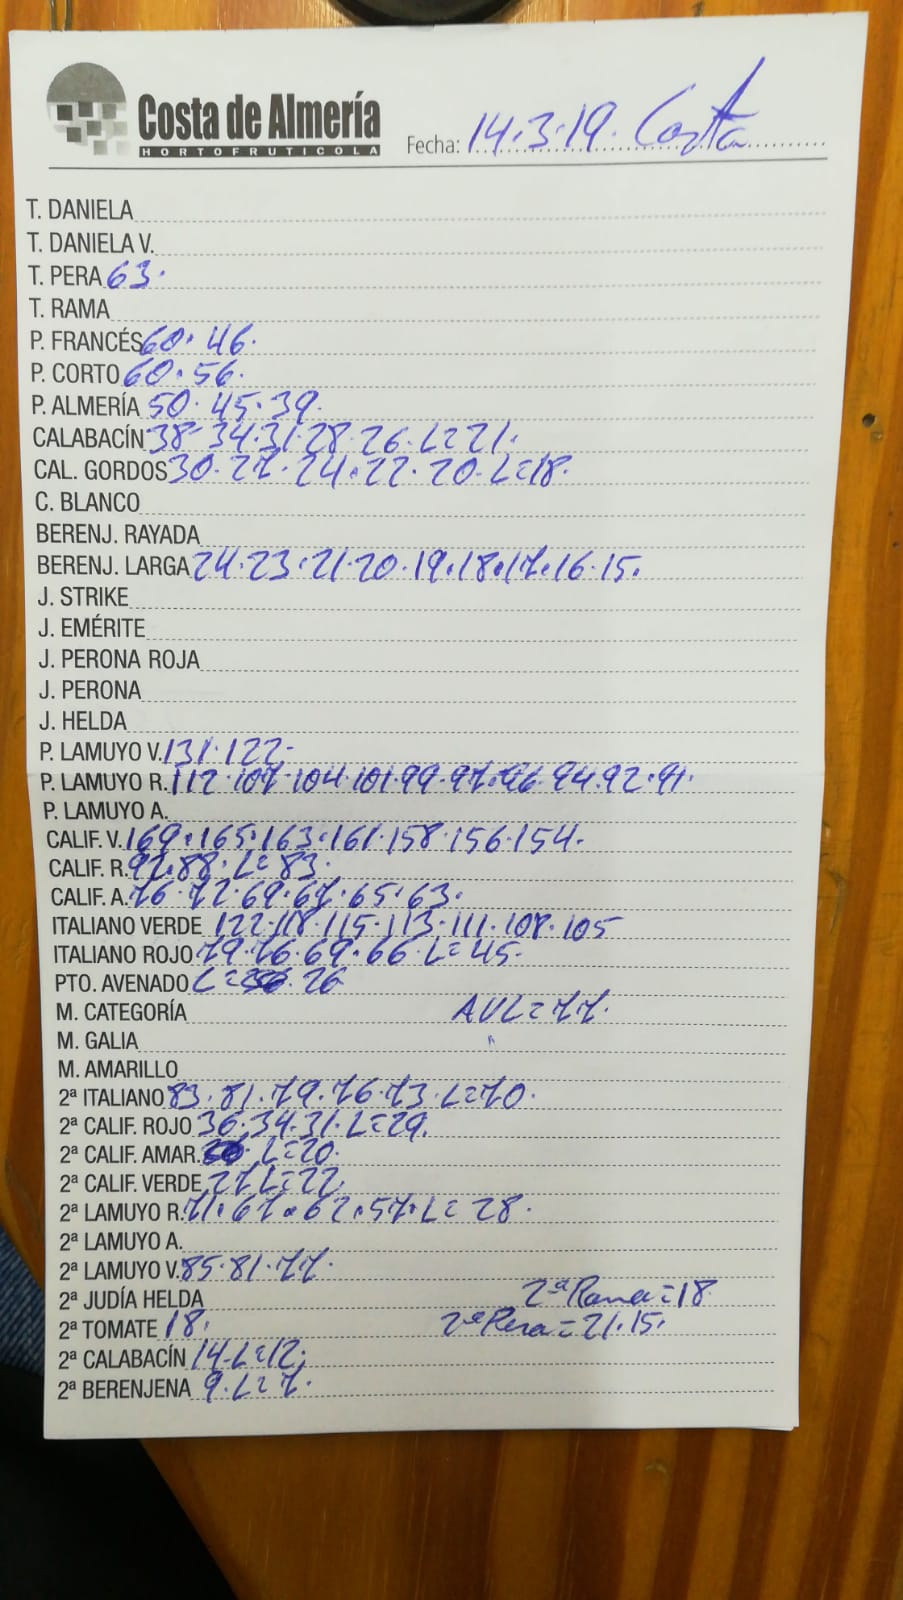 Costa de Almería
HORTOFRUTICOLA
Fecha: 14.3.19. Costa
T. DANIELA
T. DANIELA V.
T. PERA 63.
T. RAMA
P. FRANCÉS 60. 46.
P. CORTO 60. 56.
P. ALMERÍA 50. 45. 39.
CALABACÍN 38- 34. 31. 28. 26. L=21.
CAL. GORDOS 30. 27. 24. 22. 20. L=18.
C. BLANCO
BERENJ. RAYADA
BERENJ. LARGA 24. 23. 21. 20. 19. 18. 17. 16. 15.
J. STRIKE
J. EMÉRITE
J. PERONA ROJA
J. PERONA
J. HELDA
P. LAMUYO V. 131. 122-
P. LAMUYO R. 112. 107. 104. 101. 99. 97. 96. 94. 92. 91.
P. LAMUYO A.
CALIF. V. 169. 165. 163. 161. 158. 156. 154.
CALIF. R. 92. 88. L=83.
CALIF. A. 76. 72. 69. 67. 65. 63.
ITALIANO VERDE 122. 118. 115. 113. 111. 108. 105
ITALIANO ROJO 79. 76. 69. 66. L=45.
PTO. AVENADO L= 26
M. CATEGORÍA AVL=77.
M. GALIA
M. AMARILLO
2ª ITALIANO 83. 81. 79. 76. 73. L=70.
2ª CALIF. ROJO 36. 34. 31. L=29.
2ª CALIF. AMAR. L=20.
2ª CALIF. VERDE 27 L=22.
2ª LAMUYO R. 71. 67. 62. 57. L=28.
2ª LAMUYO A.
2ª LAMUYO V. 85. 81. 77.
2ª JUDÍA HELDA 2ª Rama=18
2ª TOMATE 18. 2ª Pera=21. 15.
2ª CALABACÍN 14. L=12.
2ª BERENJENA 9. L=7.